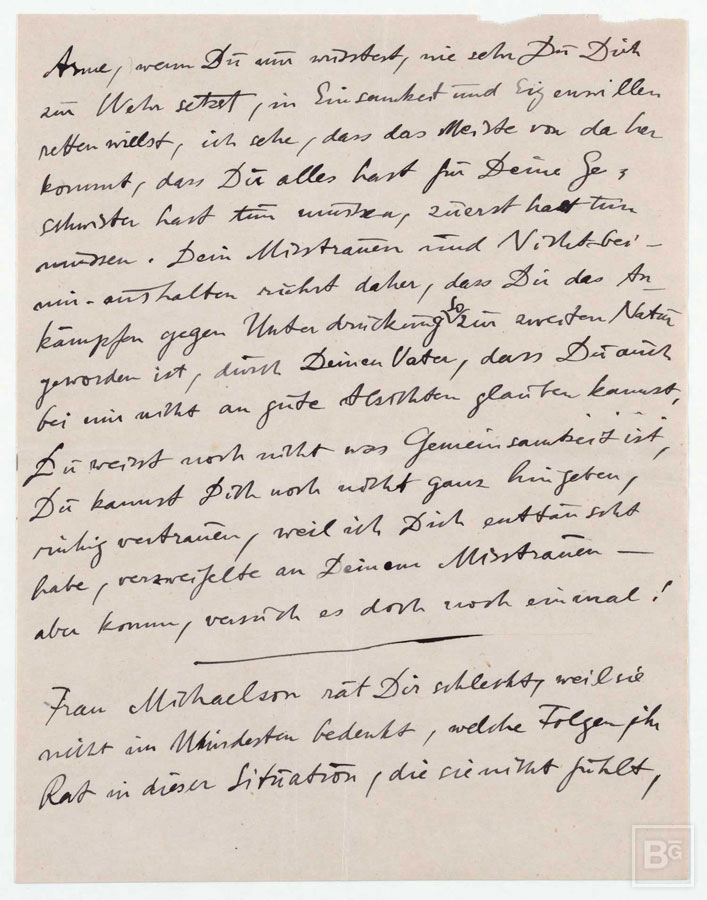 Arme, wenn Du nur wüsstest, wie sehr Du Dich
zur Wehr setzt, in Einsamkeit und Eigenwillen
retten willst, ich sehe, dass das Meiste von da her
kommt, dass Du alles hast für Deine Ge-
schwister hast tun müssen, zuerst hast tun
müssen. Dein Misstrauen und Nicht-bei-
mir-aushalten rührt daher, dass Dir das An-
kämpfen gegen Unterdrückung so zur zweiten Natur
geworden ist, durch Deinen Vater, dass Du auch
bei mir nicht an gute Absichten glauben kannst,
Du weisst noch nicht was Gemeinsamkeit ist,
Du kannst Dich noch nicht ganz hingeben,
ruhig vertrauen, weil ich Dich enttäuscht
habe, verzweifelte an Deinem Misstrauen —
aber komm, versuch es doch noch einmal!
Frau Michaelson rät Dir schlecht, weil sie
nicht im Mindesten bedenkt, welche Folgen ihr
Rat in dieser Situation, die sie nicht fühlt,
BG